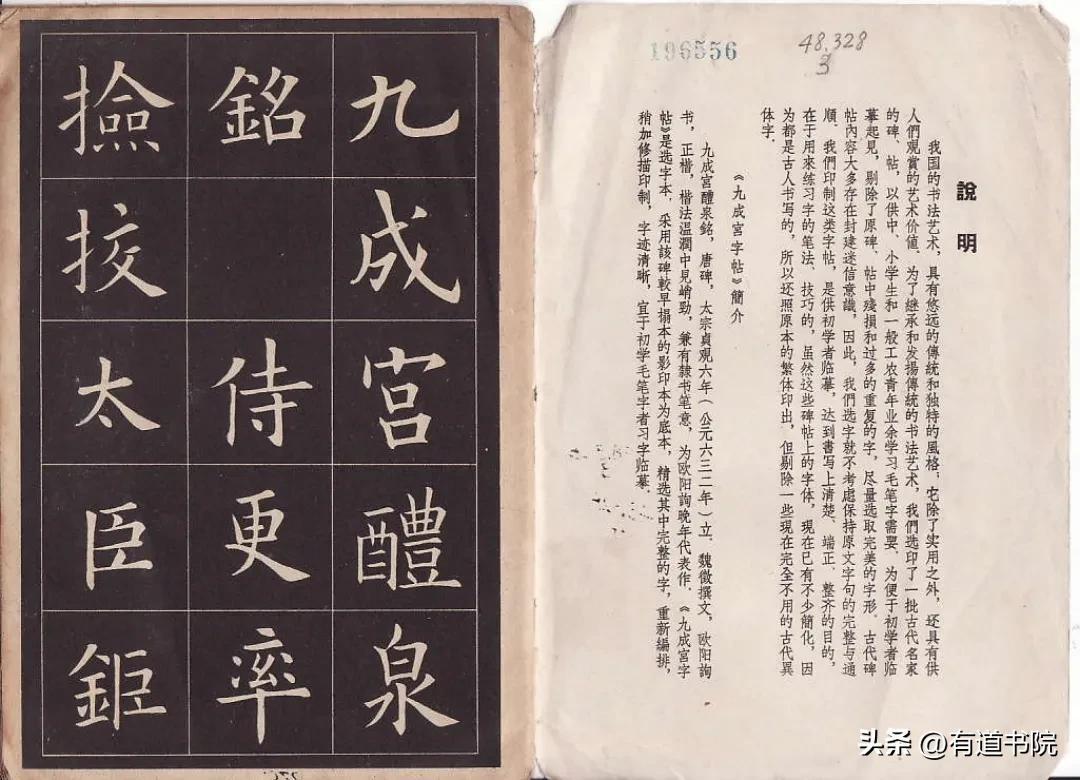 196556
48.328
3
說明
我国的书法艺术，具有悠远的傳統和独特的風格，它除了实用之外，还具有供
人們观賞的艺术价値。为了继承和发揚傳統的书法艺术，我們选印了一批古代名家
的碑、帖，以供中、小学生和一般工农青年业余学习毛笔字需要。为便于初学者临
摹起見，剔除了原碑、帖中殘損和过多的重复的字，尽量选取完美的字形。古代碑
帖內容大多存在封建迷信意識，因此，我們选字就不考虑保持原文字句的完整与通
順。我們印制这类字帖，是供初学者临摹，达到書写上清楚、端正、整齐的目的，
在于用來练习字的笔法、技巧的，虽然这些碑帖上的字体，現在已有不少簡化，因
为都是古人书写的，所以还照原本的繁体印出，但剔除一些現在完全不用的古代異
体字。
《九成宮字帖》簡介
九成宮醴泉銘，唐碑，太宗貞观六年（公元六三二年）立。魏徵撰文，欧阳詢
书，正楷，楷法温潤中見峭勁，兼有隸书笔意，为欧阳詢晚年代表作。《九成宮字
帖》是选字本，采用該碑較早搨本的影印本为底本，精选其中完整的字，重新編排，
稍加修描印制，字迹清晰，宜于初学毛笔字者习字临摹。
九成宮醴泉
銘侍更率
撿挍太臣鉅
头条 @有道书院